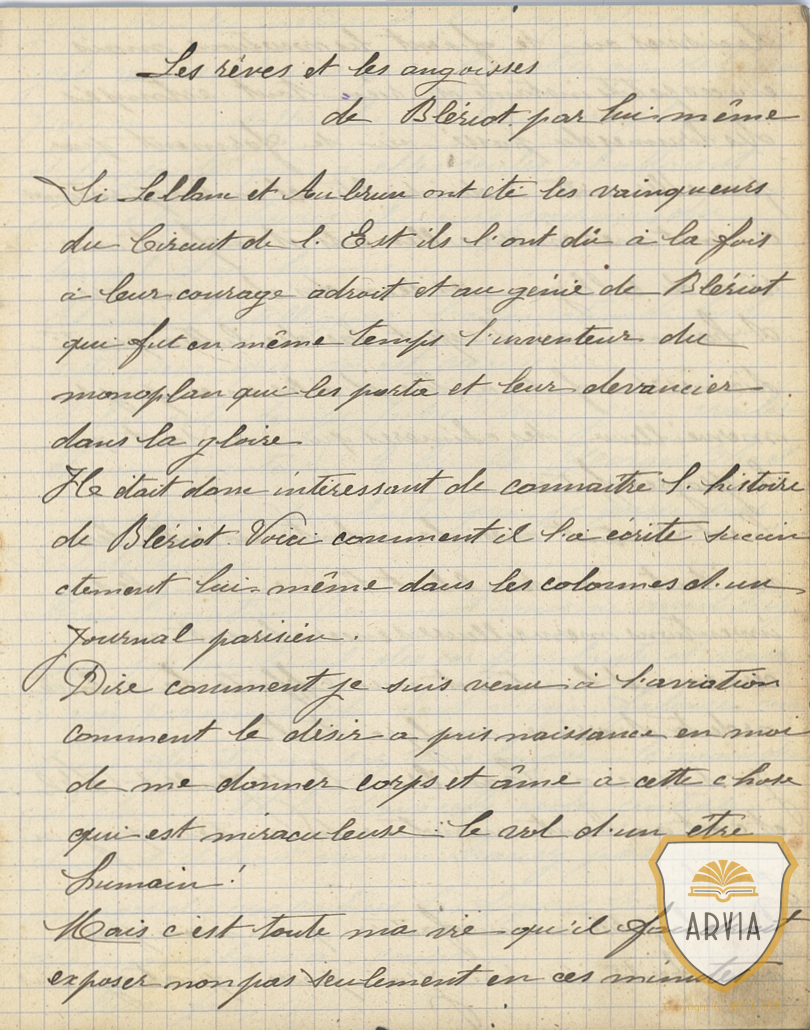 Les rêves et les angoisses
de Blériot par lui-même
Si Leblanc et Aubrun ont été les vainqueurs
du Circuit de l'Est ils l'ont dû à la fois
à leur courage adroit et au génie de Blériot
qui fut en même temps l'inventeur du
monoplan qui les porta et leur devancier
dans la gloire
Il était donc intéressant de connaître l'histoire
de Blériot. Voici comment il l'a écrite succin
ctement lui-même dans les colonnes d'un
Journal parisien.
Dire comment je suis venu à l'aviation
comment le désir a pris naissance en moi
de me donner corps et âme à cette chose
qui est miraculeuse : le vol d'un être
humain !
Mais c'est toute ma vie qu'il
exposer non pas seulement en ces
ARVIA